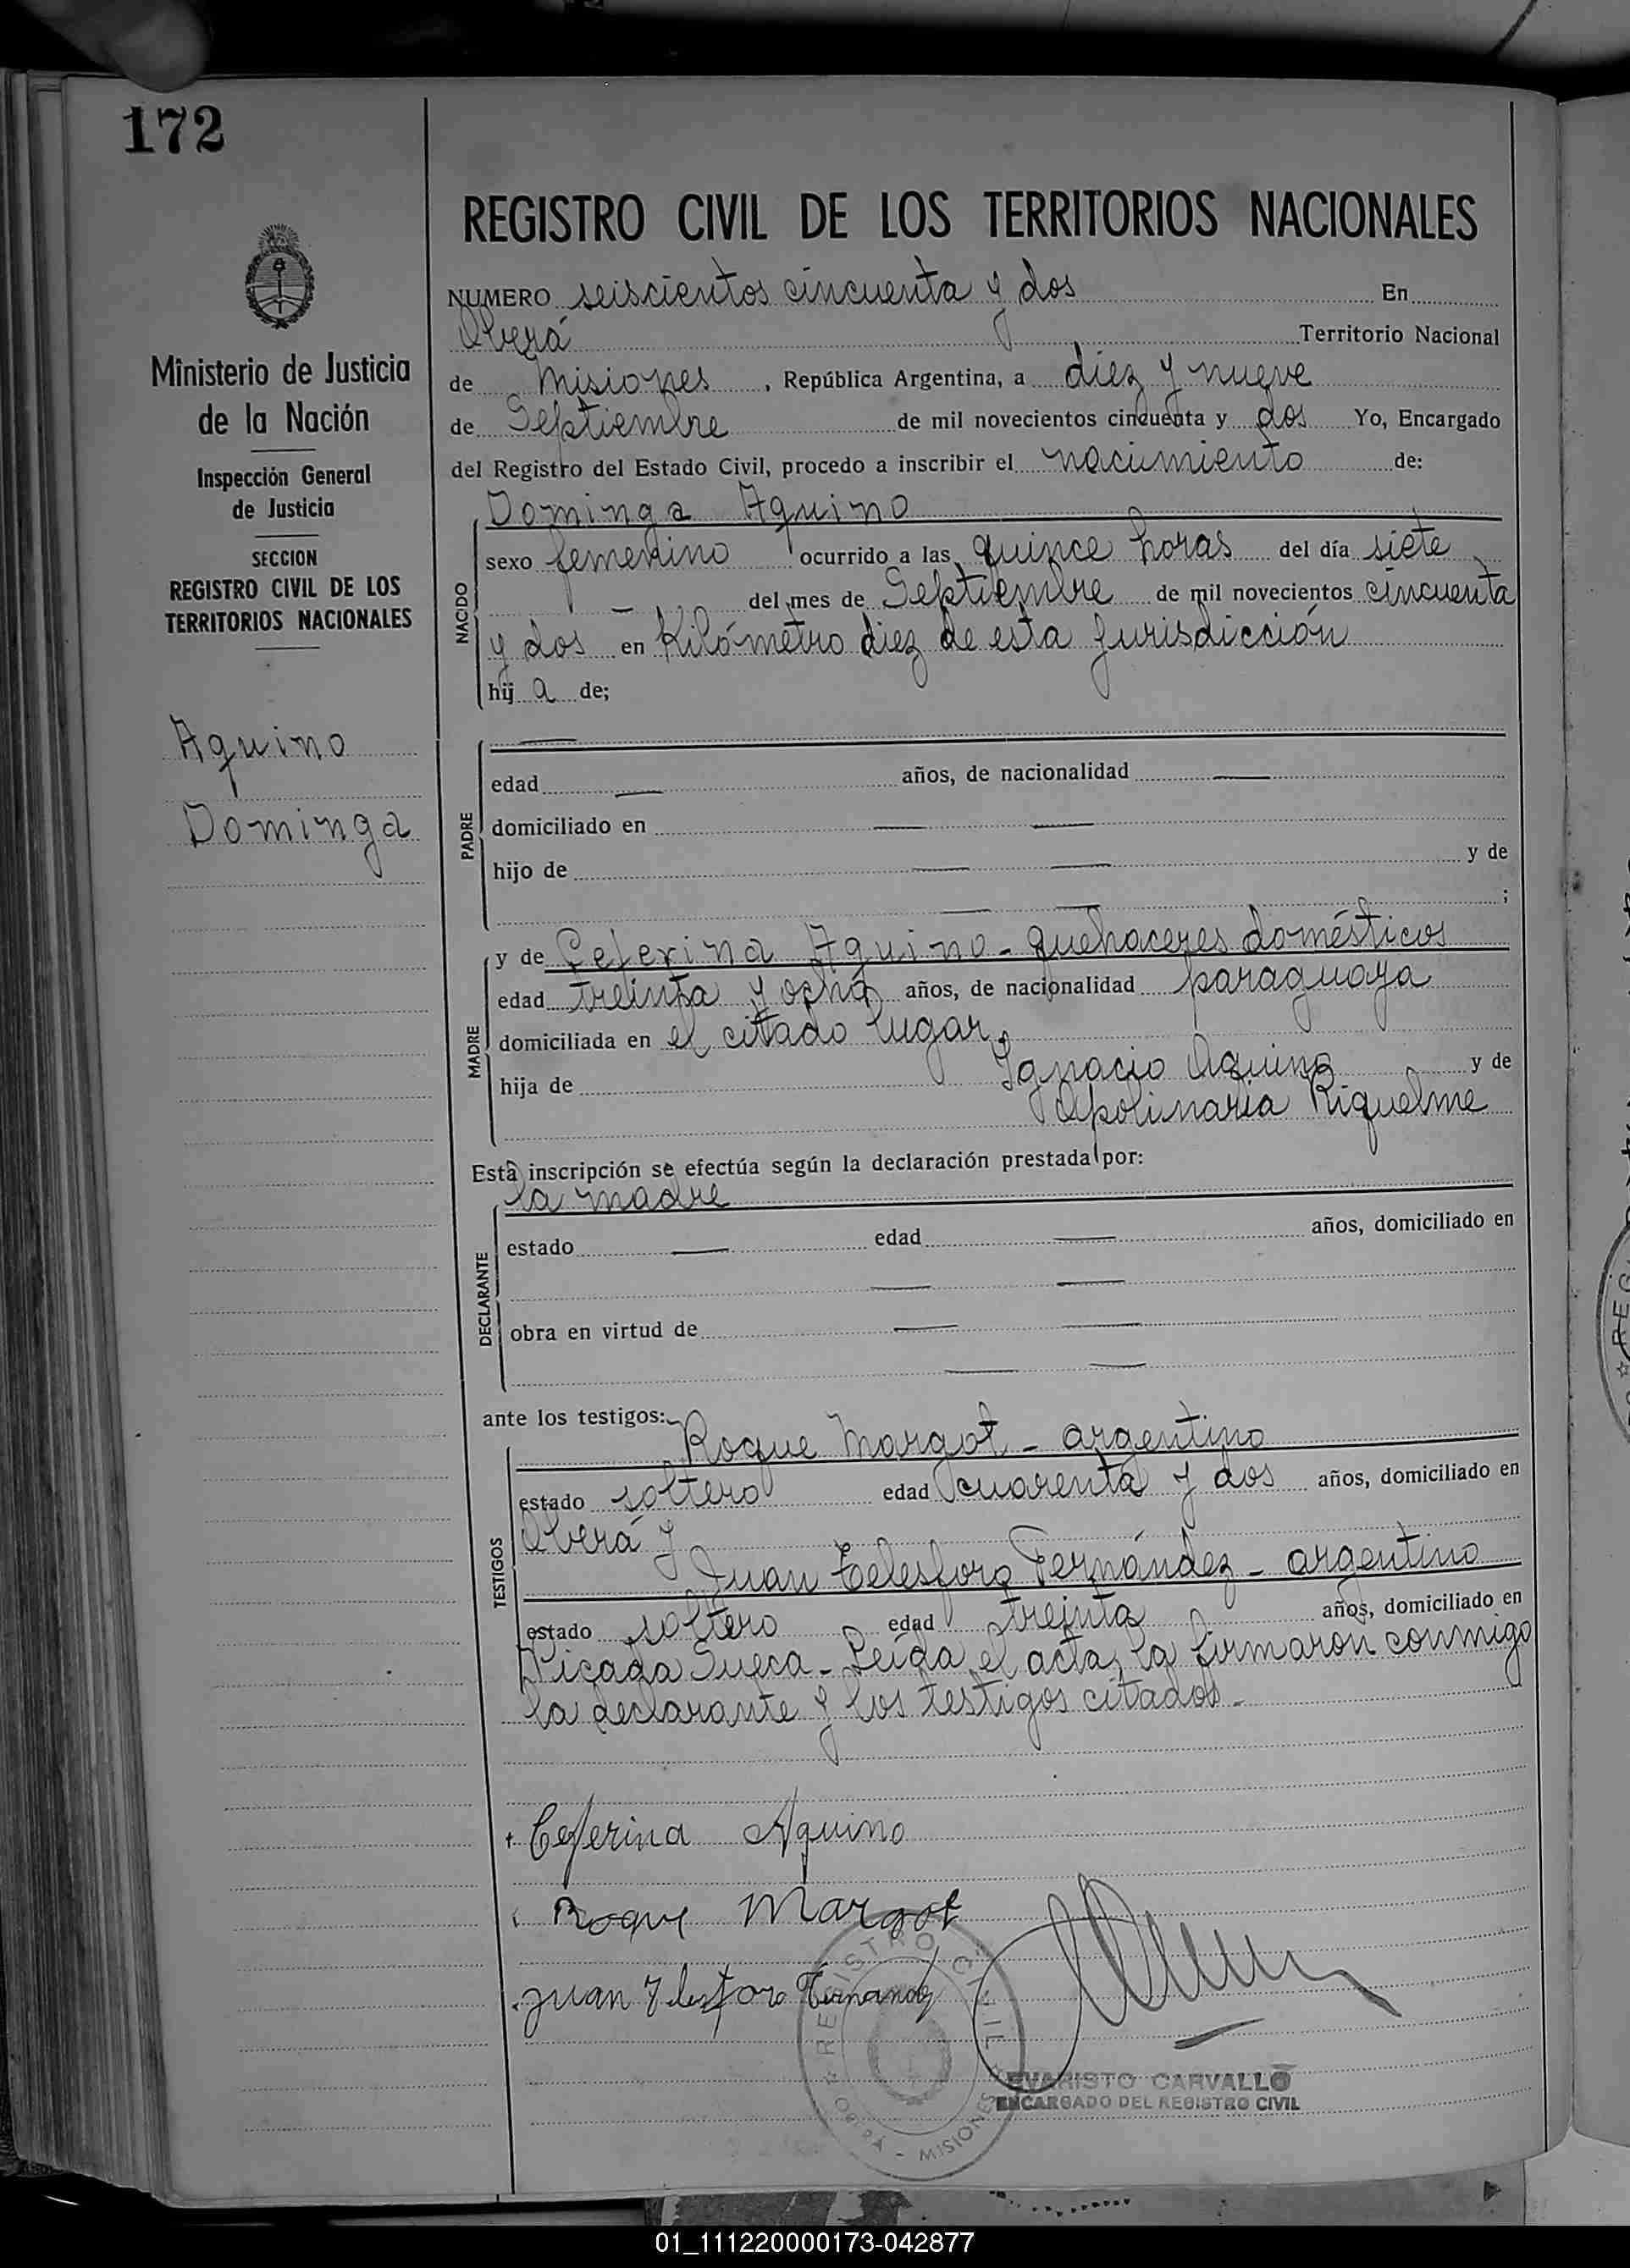 172
REGISTRO CIVIL DE LOS TERRITORIOS NACIONALES
Ministerio de Justicia
de la Nación
Inspección General
de Justicia
SECCION
REGISTRO CIVIL DE LOS
TERRITORIOS NACIONALES
Aquino
Dominga
NUMERO seiscientos cincuenta y dos En
Oberá Territorio Nacional
de Misiones, República Argentina, a diez y nueve
de Septiembre de mil novecientos cincuenta y dos Yo, Encargado
del Registro del Estado Civil, procedo a inscribir el nacimiento de:
NACIDO
Dominga Aquino
sexo femenino ocurrido a las quince horas del día siete
— del mes de Septiembre de mil novecientos cincuenta
y dos en Kilómetro diez de esta jurisdicción
hij a de;
PADRE
—
edad — años, de nacionalidad —
domiciliado en — —
hijo de — — y de
— — ;
MADRE
y de Ceferina Aquino - quehaceres domésticos
edad treinta y ocho años, de nacionalidad paraguaya
domiciliada en el citado lugar,
hija de Ignacio Aquino y de
Apolinaria Riquelme
Esta inscripción se efectúa según la declaración prestada por:
DECLARANTE
la madre
estado — edad — años, domiciliado en
— —
obra en virtud de — —
— —
ante los testigos:
TESTIGOS
Roque Margot - argentino
estado soltero edad cuarenta y dos años, domiciliado en
Oberá y
Juan Telesforo Fernández - argentino
estado soltero edad treinta años, domiciliado en
Picada Sueca - Leída el acta, la firmaron conmigo
la declarante y los testigos citados.-
Ceferina Aquino
Roque Margot
Juan Telesforo Fernandez
REGISTRO CIVIL
OBERÁ - MISIONES
EVARISTO CARVALLO
ENCARGADO DEL REGISTRO CIVIL
01_111220000173-042877